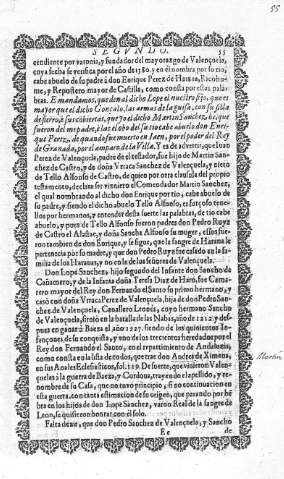 55
SEGVNDO. 55
cindiente por varonia, y fundador del mayorazgo de Valençuela,
cuya fecha se verifica por el año de 1380. y en el nombra por su tio,
cabe abuelo de su padre a don Enrique Perez de Harana, Ricoho-
me, y Repostero mayor de Castilla, como consta por estas pala-
bras. E mandamos, que den al dicho Lope el nuestro fijo, que es
mayor que el dicho Gonçalo, las armas de la guisa, con su silla
de
fueron del mepadre, è las el del su tio cate abuelo don Enri-
que Perez, de quando fue muerto en Leon, por el poder del Rey
de Granada, por el amparo de la Villa. Y es de advertir, que Lope
Perez de Valençuela, padre del testador, fue hijo de Martin San-
chez de Castro, y de doña Vrraca Sanchez de Valençuela, y nieto
de Tello Alfonso de Castro, de quien por otra clausula del propio
testamento, declara ser viznieto el Comendador Martin Sanchez,
el qual nombrando al dicho don Enrique por tio, cabe abuelo de
su padre, y siendo el dicho abuelo Tello Alfonso, es forçoso tene-
llos por hermanos, y entender desta suerte las palabras, de tio cabe
abuelo, y pues de Tello Alfonso fueron padres don Pedro Ruyz
de Castro el Alafaz, y doña Sancha Alfonso su muger, ellos fue-
ron tambien de don Enrique, y se sigue, que la sangre de Harana le
pertenecia por su madre, y que don Pedro Ruyz fue casado en la fa-
milia de los Haranas, y no en la de las señoras de Valençuela.
Don Lope Sanchez, hijo segundo del Infante don Sancho de
Cañamero, y de la Infanta doña Teresa Diaz de Haro, fue Cama-
rero mayor del Rey don Fernando el Santo su primo hermano, y
casó con doña Vrraca Perez de Valençuela, hija de don Pedro San-
chez de Valençuela, Cavallero Leonés, cuyo hermano Sancho
de Valençuela, sirvió en la batalla de las Nabas, año de 1212. y des-
pues en ganar à Baeza el año 1227. siendo de los quinientos In-
fançones de su conquista, y uno de los trecientos heredados por el
Rey don Fernando el Santo, en el repartimiento de Andaluzia,
como consta en la lista de todos, que trae don Andres de Ximena,
en sus Anales Eclesiasticos, fol. 119. De suerte, que vinieron Valen-
çuelas à la guerra de Baeza, y Cordoua, trayendo el apellido, y re-
nombre de su Casa, que no tuvo principio, si no continuacion en
esta guerra, con tanta estimacion de su origen, que passando por he-
bra en los hijos de don Lope Sanchez, varon Real de la sangre de
Leon, se quisieron honrar con el solo.
Falta dezir, que don Pedro Sanchez de Valençuelo, y Sancho
Ee de